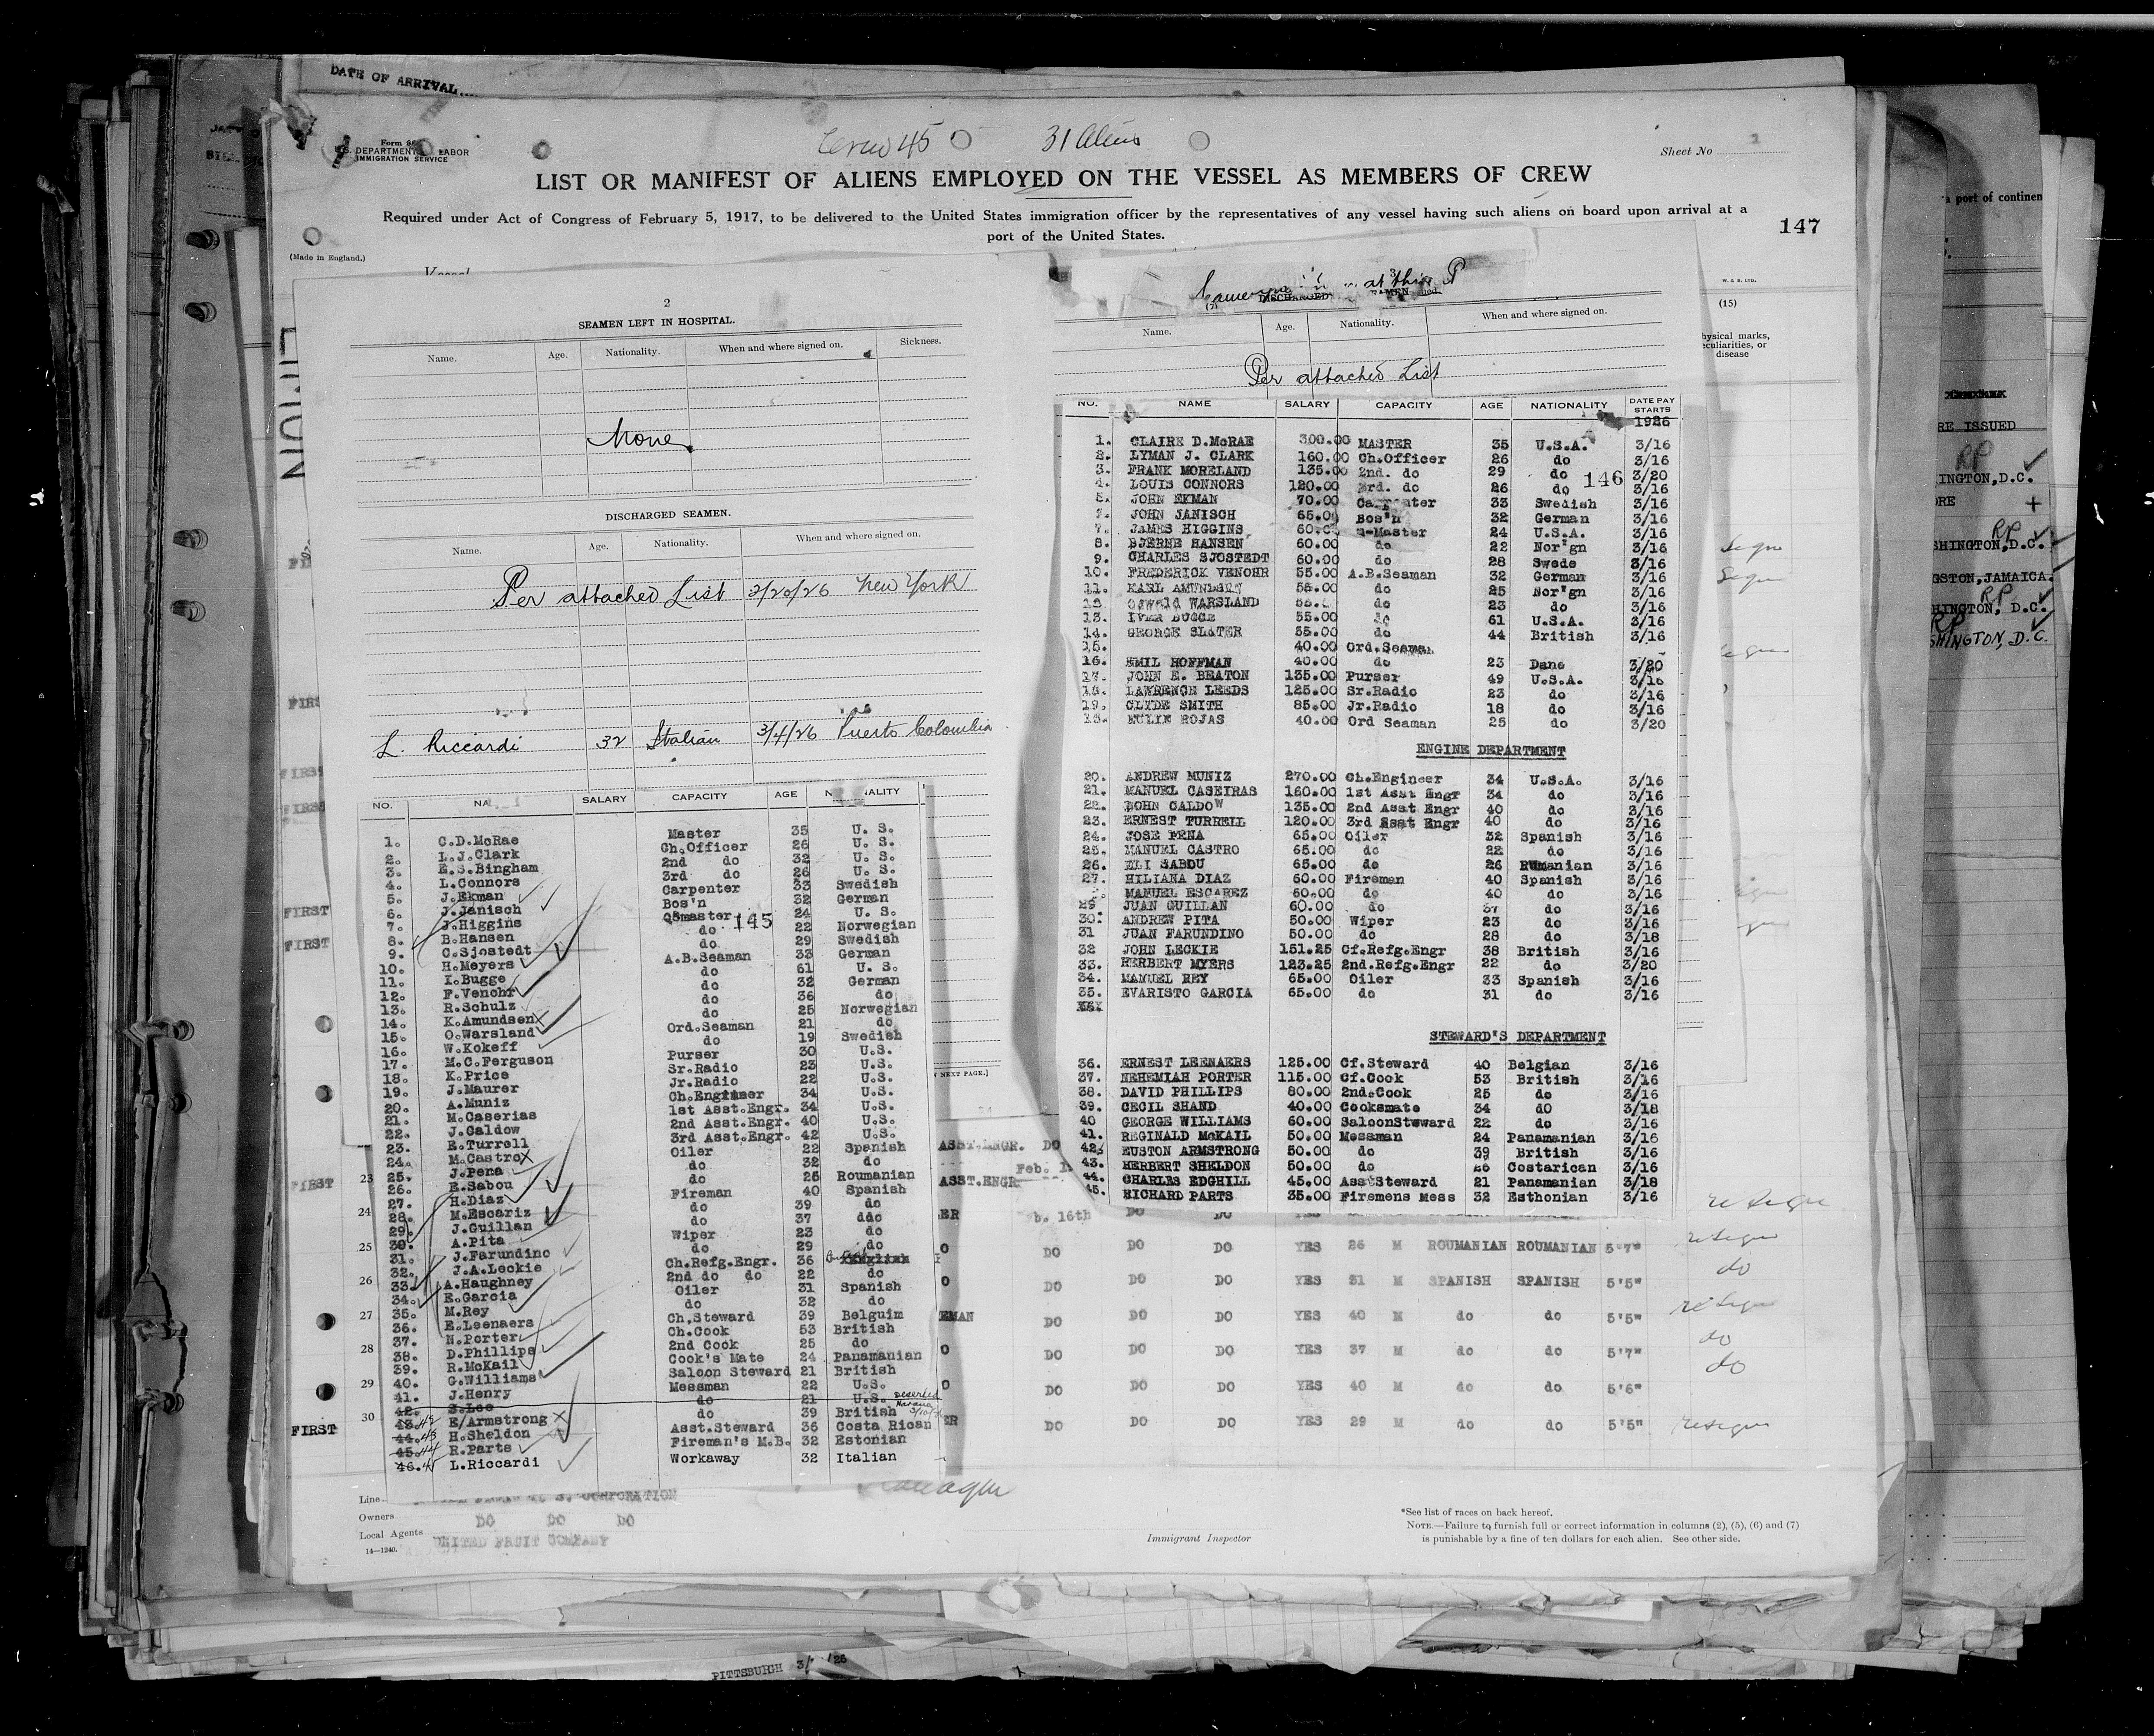 DATE OF ARRIVAL....
U.S. DEPARTMENT LABOR
IMMIGRATION SERVICE
Crew 45 31 Aliens
Sheet No
LIST OR MANIFEST OF ALIENS EMPLOYED ON THE VESSEL AS MEMBERS OF CREW
Required under Act of Congress of February 5, 1917, to be delivered to the United States immigration officer by the representatives of any vessel having such aliens on board upon arrival at a
port of the United States.
147
(Made in England.)
2
SEAMEN LEFT IN HOSPITAL.
Name. Age. Nationality. When and where signed on. Sickness.
None
DISCHARGED SEAMEN.
Name. Age. Nationality. When and where signed on.
Per attached List 3/20/26 New York
L. Riccardi 32 Italian 3/4/26 Puerto Colombia
NO. SALARY CAPACITY AGE
1. C.D.McRae Master 35 U. S.
2. L.J.Clark Ch.Officer 26 U. S.
3. E.S.Bingham 2nd do 32 U. S.
4. L.Connors 3rd do 26 U. S.
5. J.Ekman Carpenter 33 Swedish
6. J.Janisch Bos'n 32 German
7. J.Higgins Q5master 24 U. S.
145
8. B.Hansen do 22 Norwegian
9. C.Sjostedt do 29 Swedish
10. H.Meyers A.B.Seaman 33 German
11. I.Bugge do 61 U. S.
12. F.Venohr do 32 German
13. R.Schulz do 36 do
14. K.Amundsen do 25 Norwegian
15. O.Warsland Ord.Seaman 21 do
16. W.Kokeff do 19 Swedish
17. M.C.Ferguson Purser 30 U.S.
18. K.Price Sr.Radio 23 U.S.
19. J.Maurer Jr.Radio 22 U.S.
20. A.Muniz Ch.Engineer 34 U.S.
21. M.Caserias 1st Asst.Engr. 34 U.S.
22. J.Caldow 2nd Asst.Engr. 40 U.S.
23. E.Turrell 3rd Asst.Engr. 42 U.S.
24. M.Castro Oiler 22 Spanish
25. J.Pena do 32 do
26. E.Sabou do 25 Roumanian
27. H.Diaz Fireman 40 Spanish
28. M.Escariz do 39 do
29. J.Guillan do 37 ddo
30. A.Pita Wiper 23 do
31. J.Farundino do 29 do
32. J.A.Leckie Ch.Refg.Engr. 36
33. A.Haughney 2nd do do 22 do
34. E.Garcia Oiler 31 Spanish
35. M.Rey do 32 do
36. E.Leenaers Ch.Steward 39 Belguim
37. N.Porter Ch.Cook 53 British
38. D.Phillips 2nd Cook 25 do
39. R.McKail Cook's Mate 24 Panamanian
40. G.Williams Saloon Steward 21 British
41. J.Henry Messman 22 U.S.
42. S.Lee do 21 U.S. Deserted Havana
43. 42 E/Armstrong do 39 British
44. 43 H.Sheldon Asst.Steward 36 Costa Rican
45. 44 R.Parts Fireman's M.B. 32 Estonian
46. 45 L.Riccardi Workaway 32 Italian
3
at this P
DISCHARGED SEAMEN
Name. Age. Nationality. When and where signed on.
Per attached List
NO. NAME SALARY CAPACITY AGE NATIONALITY DATE PAY STARTS
1926
1. CLAIRE D.McRAE 300.00 MASTER 35 U.S.A. 3/16
2. LYMAN J. CLARK 160.00 Ch.Officer 26 do 3/16
3. FRANK MORELAND 135.00 2nd. do 29 do 3/20
146
4. LOUIS CONNORS 120.00 3rd. do 26 do 3/16
5. JOHN EKMAN 70.00 Carpenter 33 Swedish 3/16
JOHN JANISCH 65.00 Bos'n 32 German 3/16
7. JAMES HIGGINS 60.00 Q-Master 24 U.S.A. 3/16
8. BJERNE HANSEN 60.00 do 22 Nor'gn 3/16
9. CHARLES SJOSTEDT 60.00 do 28 Swede 3/16
10. FREDERICK VENOHR 55.00 A.B.Seaman 32 German 3/16
11. KARL AMUNDSEN 55.00 do 25 Nor'gn 3/16
12. Oswald WARSLAND 55. do 23 do 3/16
13. IVER BUGGE 55.00 do 61 U.S.A. 3/16
14. GEORGE SLATER 55.00 do 44 British 3/16
15. 40.00 Ord.Seaman
16. EMIL HOFFMAN 40.00 do 23 Dane 3/20
17. JOHN E. BEATON 135.00 Purser 49 U.S.A. 3/16
18. LAWRENCE LEEDS 125.00 Sr.Radio 23 do 3/16
19. CLYDE SMITH 85.00 Jr.Radio 18 do 3/16
15. ROJAS 40.00 Ord Seaman 25 do 3/20
ENGINE DEPARTMENT
20. ANDREW MUNIZ 270.00 Ch.Engineer 34 U.S.A. 3/16
21. MANUEL CASEIRAS 160.00 1st Asst Engr 34 do 3/16
22. JOHN CALDOW 135.00 2nd Asst Engr 40 do 3/16
23. ERNEST TURRELL 120.00 3rd Asst Engr 40 do 3/16
24. JOSE PENA 65.00 Oiler 32 Spanish 3/16
25. MANUEL CASTRO 65.00 do 22 do 3/16
26. ELI SABOU 65.00 do 26 RUmanian 3/16
27. HILIANA DIAZ 60.00 Fireman 40 Spanish 3/16
MANUEL ESCAREZ 60.00 do 40 do 3/16
29 JUAN GUILLAN 60.00 do 37 do 3/16
30. ANDREW PITA 50.00 Wiper 23 do 3/16
31 JUAN FARUNDINO 50.00 do 28 do 3/18
32 JOHN LECKIE 151.25 Cf.Refg.Engr 38 British 3/16
33. HERBERT MYERS 123.25 2nd.Refg.Engr 22 do 3/20
34. MANUEL REY 65.00 Oiler 33 Spanish 3/16
35. EVARISTO GARCIA 65.00 do 31 do 3/16
STEWARD'S DEPARTMENT
36. ERNEST LEENAERS 125.00 Cf.Steward 40 Belgian 3/16
37. NEHEMIAH PORTER 115.00 Cf.Cook 53 British 3/16
38. DAVID PHILLIPS 80.00 2nd.Cook 25 do 3/16
39. CECIL SHAND 40.00 Cooksmate 34 dO 3/18
40 GEORGE WILLIAMS 60.00 SaloonSteward 22 do 3/16
41. REGINALD McKAIL 50.00 Messman 24 Panamanian 3/16
42. EUSTON ARMSTRONG 50.00 do 39 British 3/16
43. HERBERT SHELDON 50.00 do 26 Costarican 3/16
44. CHARLES EDGHILL 45.00 AssSteward 21 Panamanian 3/18
45. RICHARD PARTS 35.00 Firemens Mess 32 Esthonian 3/16
(15)
hysical marks,
eculiarities, or
disease
a port of continen
RE ISSUED
RP
INGTON,D.C.
ORE +
RP
SHINGTON,D.C.
GSTON,JAMAICA.
RP
HINGTON, D.C.
RP
SHINGTON, D.C.
FIRST
FIRST
FIRST
FIRST
NEXT PAGE.]
23 FIRST ASST.ENGR. DO
ASST.ENGR
24 ER b. 16th DO DO YES
25 DO DO DO YES 26 M ROUMANIAN ROUMANIAN 5'7"
26 DO DO DO YES 31 M SPANISH SPANISH 5'5" do
27 EMAN DO DO DO YES 40 M do do 5'5"
28 DO DO DO YES 37 M do do 5'7" do
do
29 DO DO DO YES 40 M do do 5'6"
30 FIRST ER DO DO DO YES 29 M do do 5'5"
Line S. CORPORATION
Owners DO DO DO
Local Agents UNITED FRUIT COMPANY
14—1240.
Immigrant Inspector
*See list of races on back hereof.
NOTE.—Failure to furnish full or correct information in columns (2), (5), (6) and (7)
is punishable by a fine of ten dollars for each alien. See other side.
PITTSBURGH